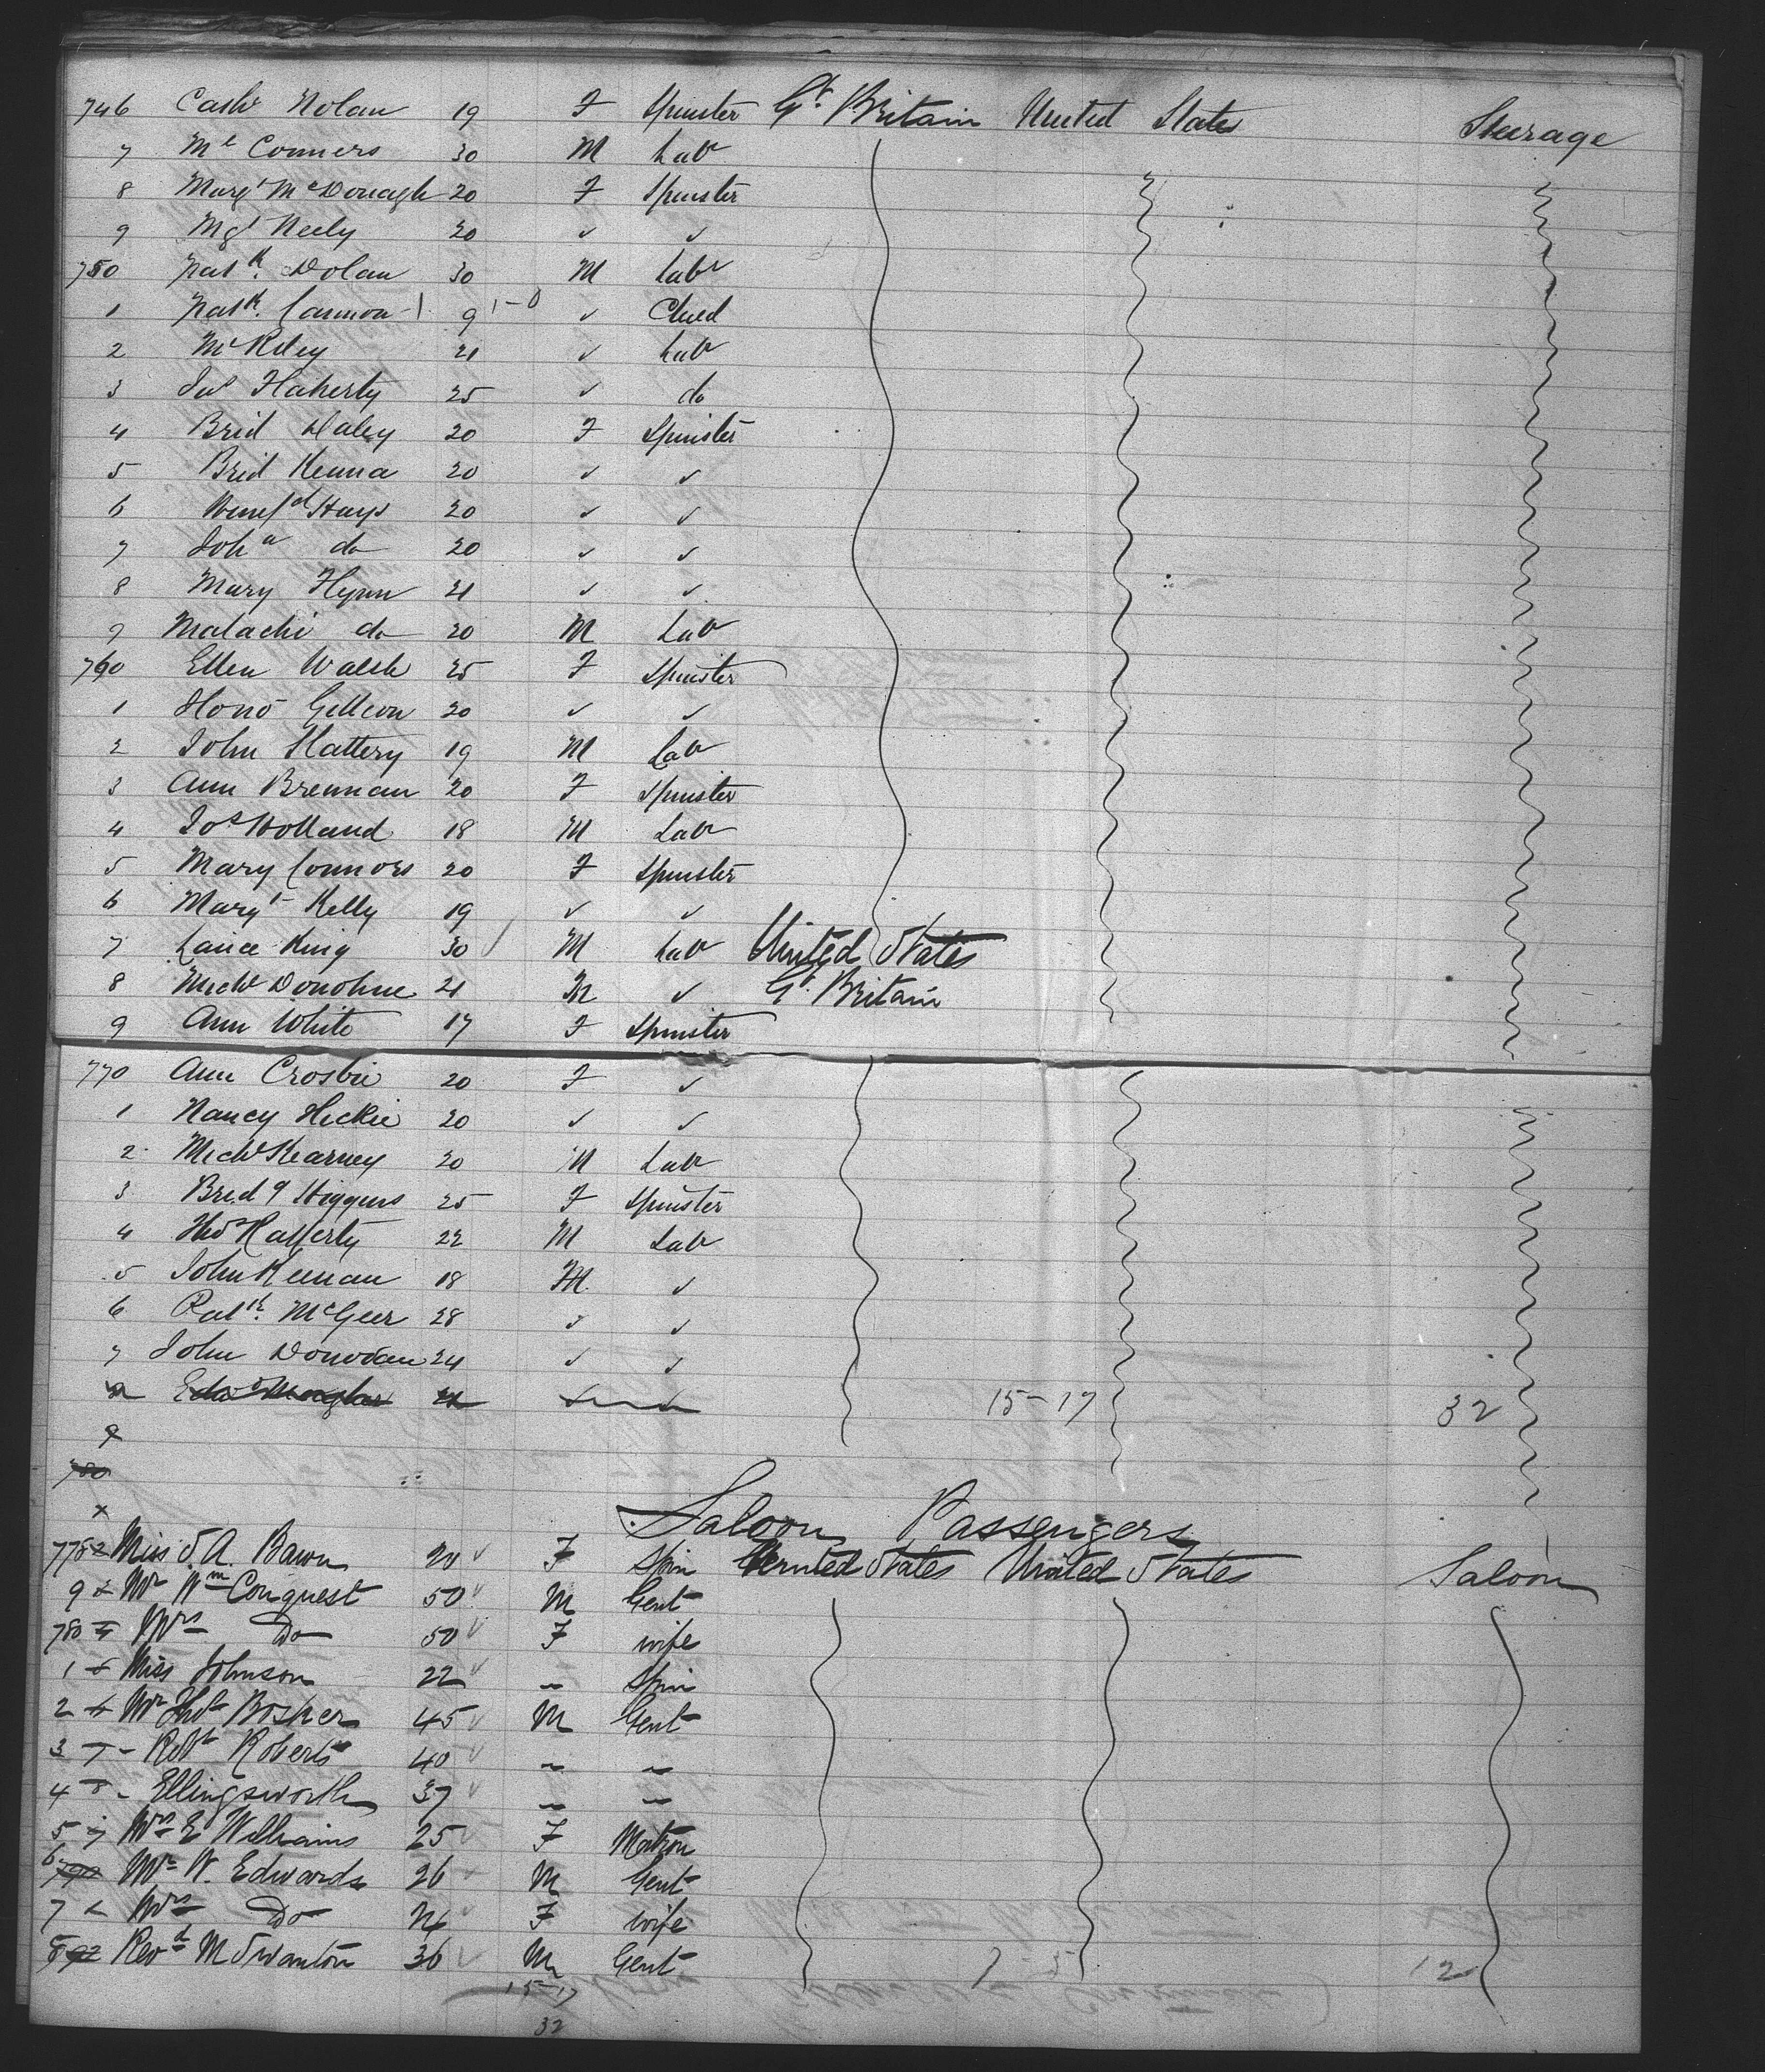 746 Cathe Nolan 19 F Spinster Gt. Britain United States Steerage
7 Ml Conners 30 M Labr
8 Margt McDonagh 20 F Spinster
9 Mgt Neely 20 ✓ ✓
750 Patk. Dolan 30 M Labr
1 Patk. Cannon 9 ✓ Child
2 Ml Riley 21 ✓ Labr
3 Flaherty 25 ✓ do
4 Brid Daley 20 F Spinster
5 Brid Kenna 20 ✓ ✓
6 Winefd Hays 20 ✓ ✓
7 Joha do 20 ✓ ✓
8 Mary Flynn 21 ✓ ✓
9 Malachi do 20 M Labr
760 Ellen Walsh 25 F Spinster
1 Hono 20 ✓ ✓
2 John Slattery 19 M Labr
3 Ann Brennan 20 F Spinster
4 Jos Holland 18 M Labr
5 Mary Connors 20 F Spinster
6 Margt Kelly 19 ✓ ✓
7 Lance King 30 M Labr United States
8 Michl Donohue 21 M ✓ Gt. Britain
9 Ann White 17 F Spinster
770 Ann Crosbie 20 F ✓
1 Nancy Hickie 20 ✓ ✓
2 Michl Kearney 20 M Labr
3 Bridt Higgins 25 F Spinster
4 Thos Rafferty 22 M Labr
5 John Keenan 18 M ✓
6 Patk. McGeer 28 ✓ ✓
7 John Donovan 24 ✓ ✓
15-17 32
9
780
Saloon Passengers
778 Miss S. A. Bacon 20 F Spin United States United States Saloon
9 Mr Wm Conquest 50 M Gent
780 Mrs Do 50 F wife
1 Miss Johnson 22 " Spin
2 Mr Thos Bosher 45 M Gent
3 " Robt Roberts 40 " "
4 " Ellingsworth 37 " "
5 Mrs E Williams 25 F Matron
6 Mr W. Edwards 26 M Gent
7 Mrs Do 24 F wife
8 Revd M Swanton 36 M Gent 7-5 12
15-17
32